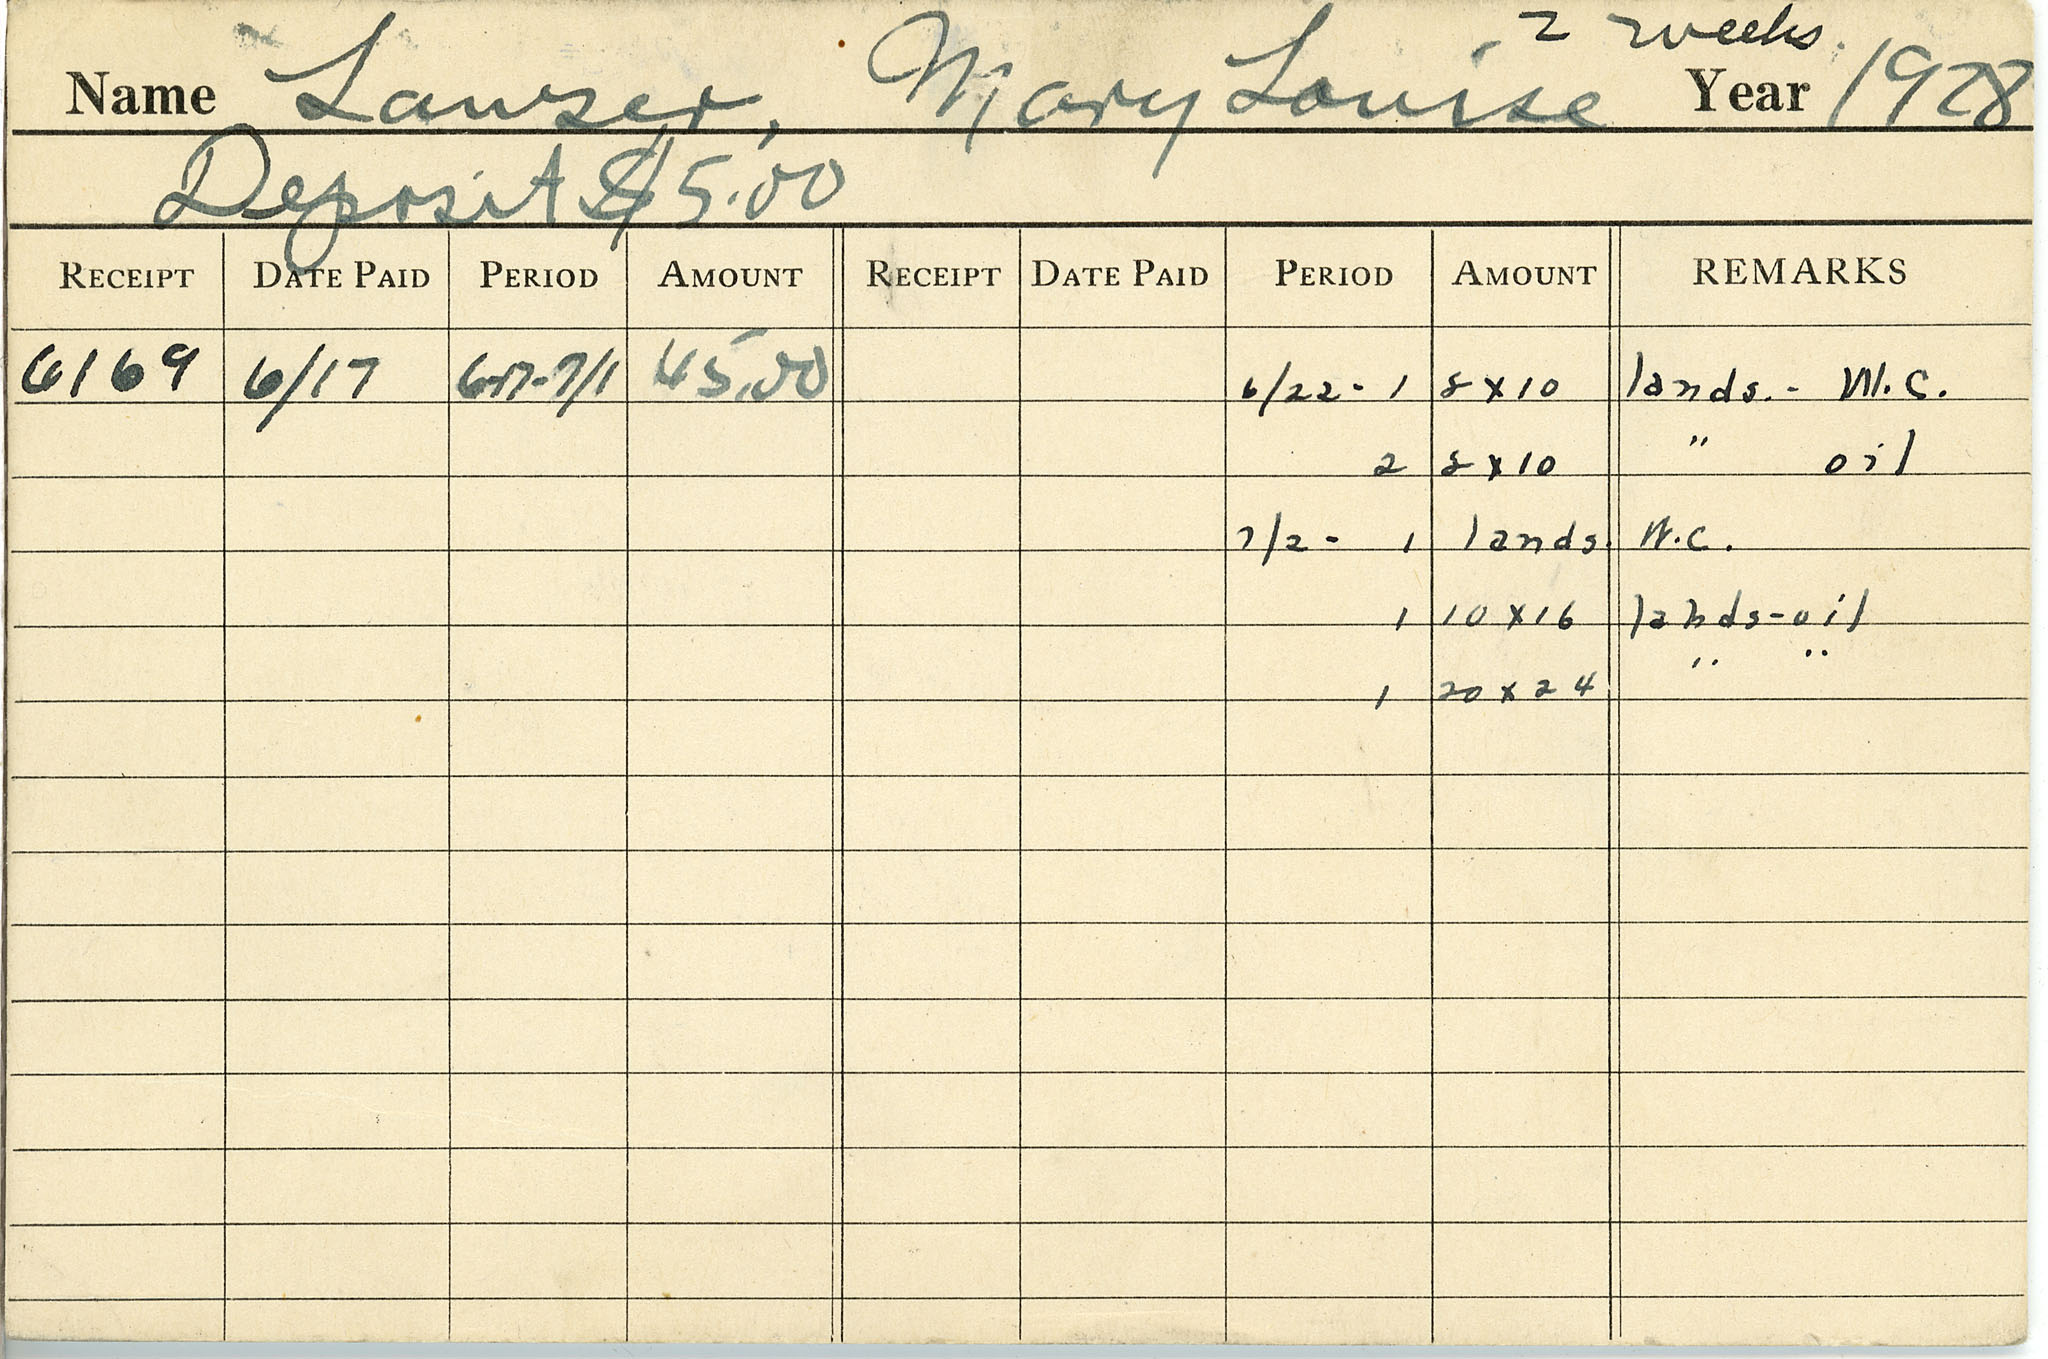 2 weeks.
Name Lawser, Mary Louise Year 1928
Deposit $5.00
RECEIPT DATE PAID PERIOD AMOUNT RECEIPT DATE PAID PERIOD AMOUNT REMARKS
6169 6/17 6-17-7/1 45.00 6/22 - 1 8 x 10 lands. - W.C.
2 8 x 10 " oil
7/2 - 1 lands. W.C.
1 10 x 16 lands - oil
1 20 x 24 " "